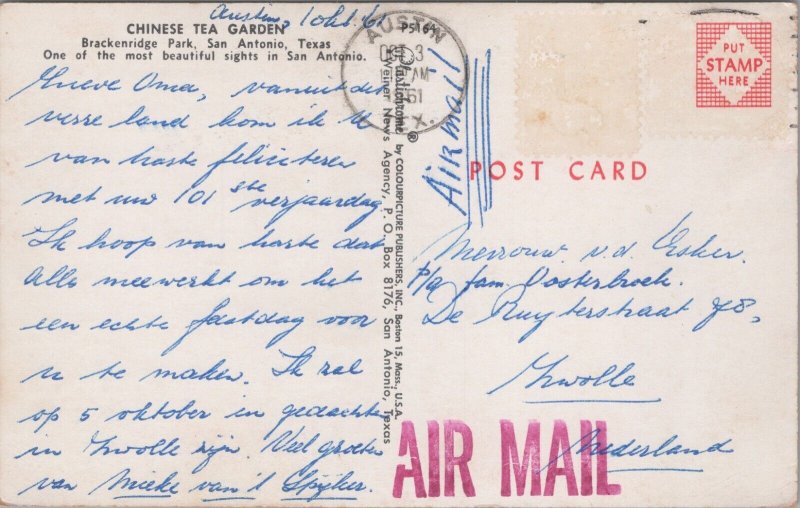 Austin, 1 okt. 61
CHINESE TEA GARDEN
P5164
Brackenridge Park, San Antonio, Texas
One of the most beautiful sights in San Antonio.
Lieve Oma, vanuit dit
verre land kom ik U
van harte feliciteren
met uw 101ste verjaardag.
Ik hoop van harte dat
alles meewerkt om het
een echte feestdag voor
u te maken. Ik zal
op 5 oktober in gedachten
in Zwolle zijn. Veel groeten
van Mieke van 't Spijker.
Plastichrome ® by COLOURPICTURE PUBLISHERS, INC., Boston 15, Mass., U.S.A.
Weiner News Agency, P. O. Box 8176, San Antonio, Texas
AUSTIN
3
AM
1961
TEX.
Airmail
PUT
STAMP
HERE
POST CARD
Mevrouw v.d. Esker.
p/a fam. Oosterbroek.
De Ruyterstraat 78,
Zwolle
Nederland
AIR MAIL